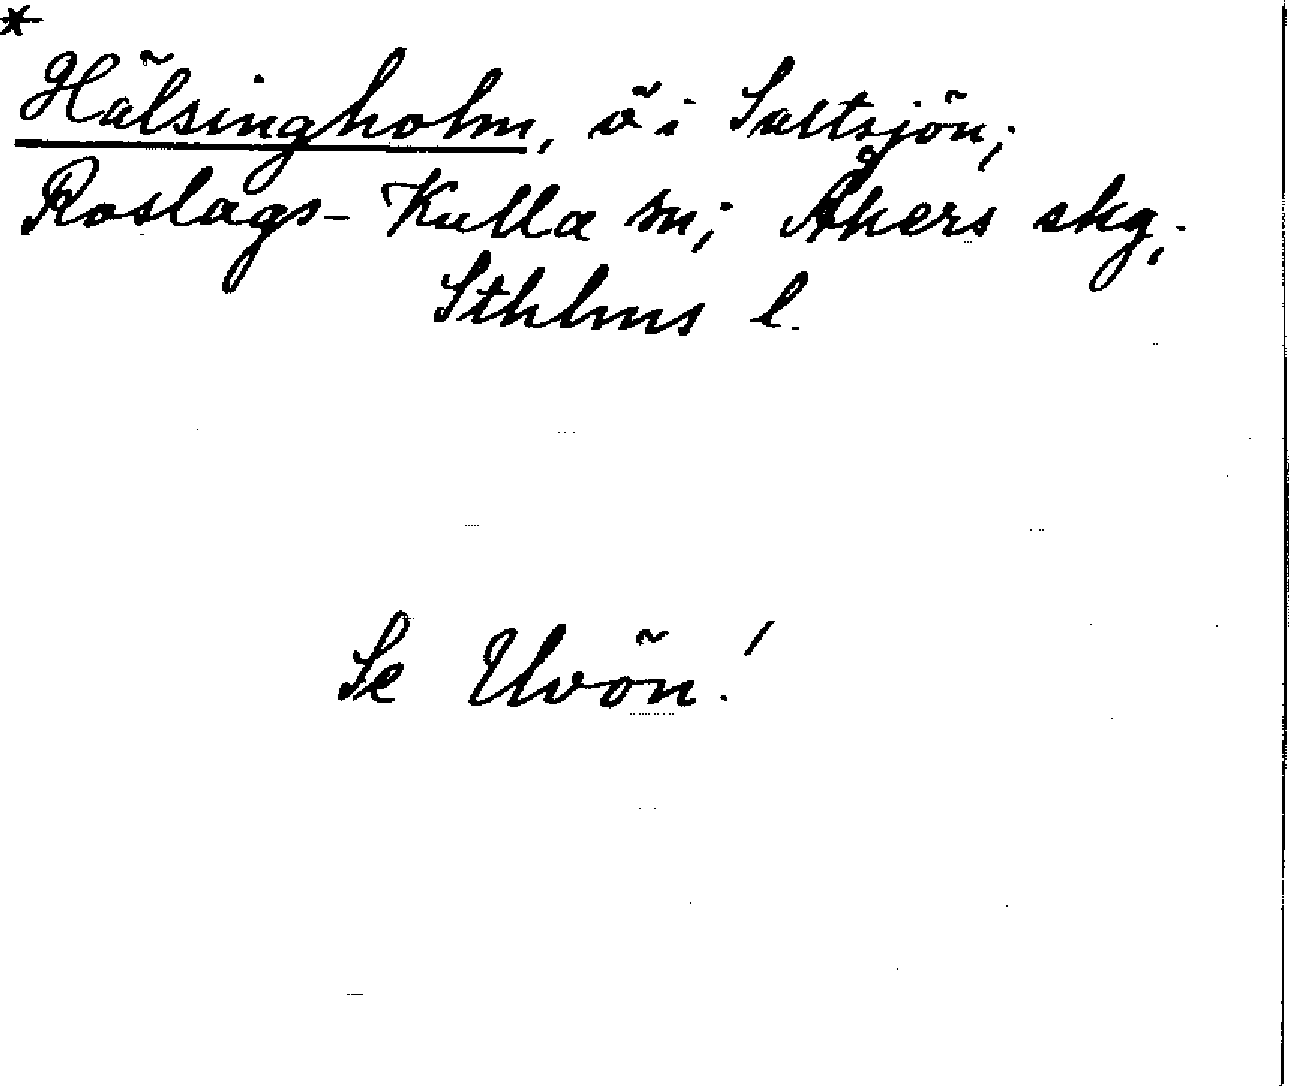 *
Hälsingholm, ö i Saltsjön;
Roslags-Kulla sn; Åkers skg;
Sthlms l.
Se Uvön!